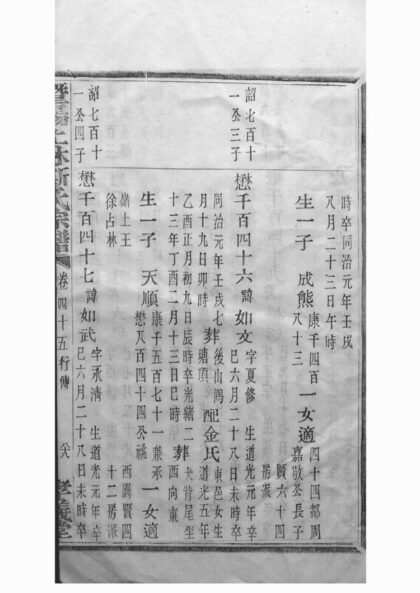 時卒同治元年壬戌
八月二十三日午時
生一子 成熊 康千四百八十三 一女適 四十四都周嘉散丞長子
賢六十四房派
韶七十一丞三子
懋千百四十六 諱如文 字夏修 生道光元年辛巳六月二十八日未時卒
同治元年壬戌七月十九日卯時 葬 後山灣塘頂 配金氏 東邑女生道光五年
乙酉正月初九日辰時卒光緒二十三年丁酉二月十三日巳時 葬 犬背尾坐西向東
生一子 天順 康千五百七十一兼承懋八百四十四丞祧 一女適 西溝賢四十二房派
諸上王徐占林
韶七百十一丞四子
懋千百四十七 諱如武 字承淸 生道光元年辛巳六月二十八日未時卒
暨陽上林斯氏宗譜 卷四十五行傳 六八 孝義堂